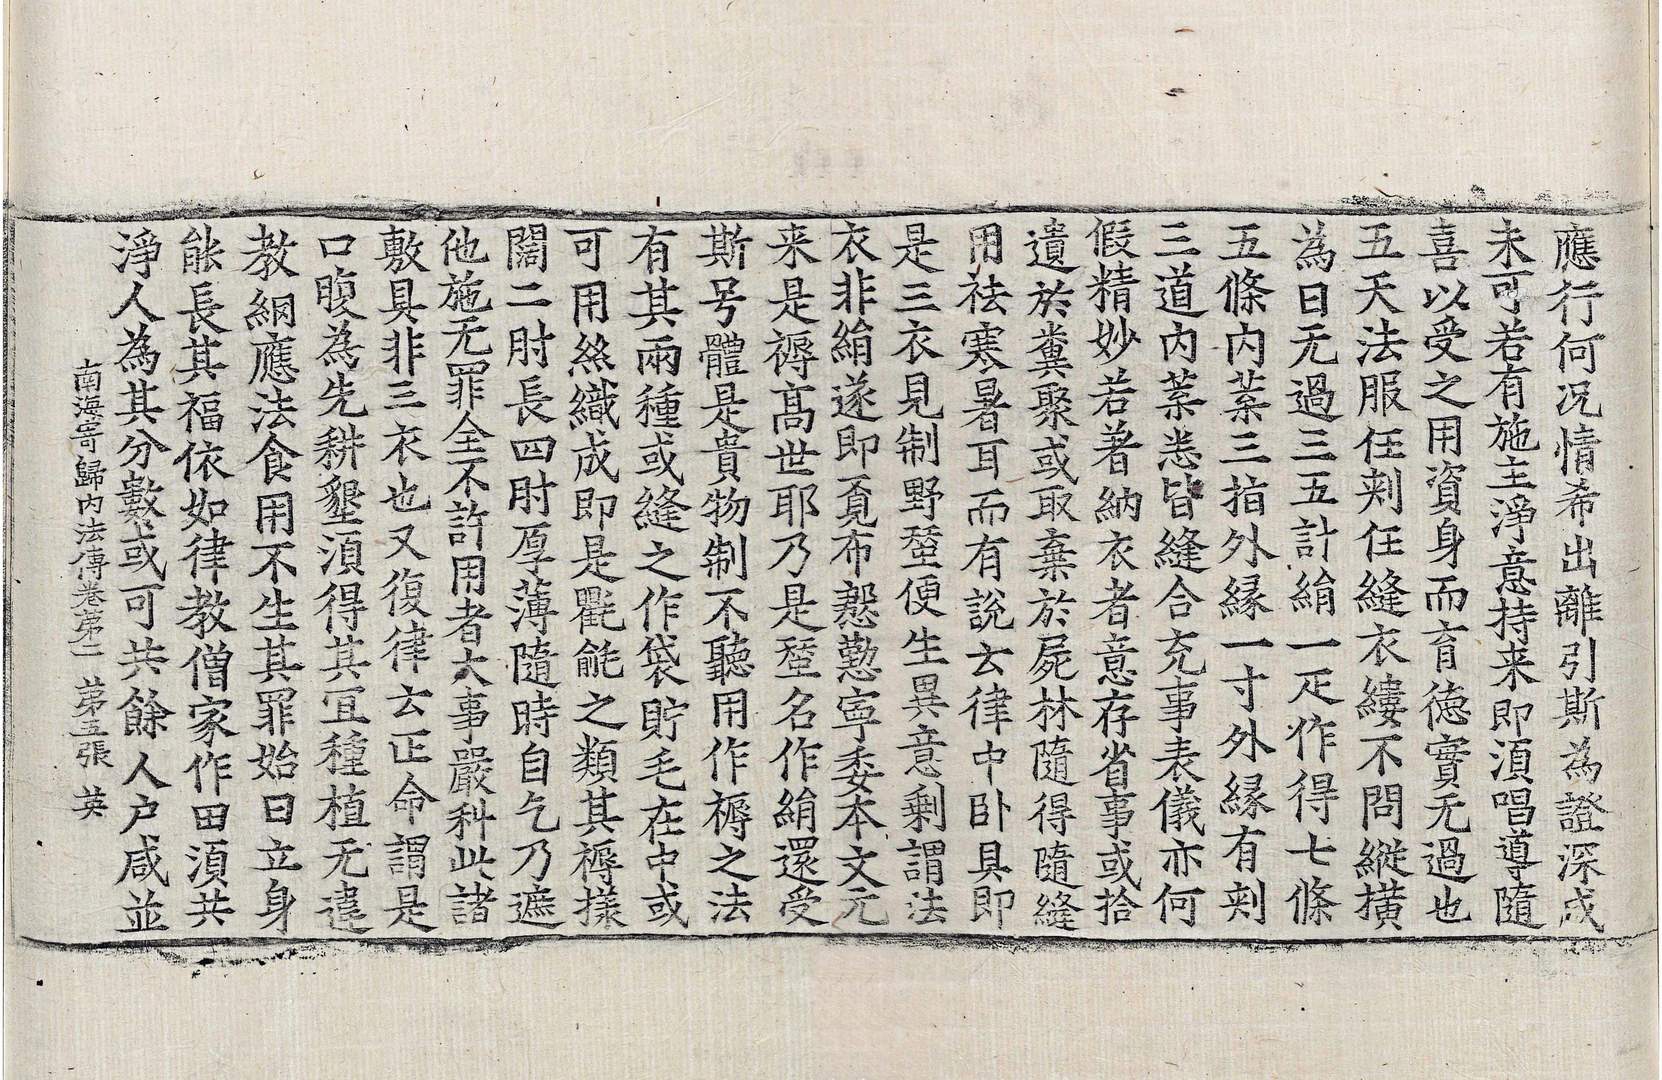 應行何況情希出離引斯為證深成
未可若有施主淨意持来即湏唱導隨
喜以受之用資身而育德實无過也
五天法服任刾任縫衣縷不問縱撗
為日无過三五計絹一疋作得七條
五條內葉三指外縁一寸外縁有刾
三道內葉悉皆縫合充事表儀亦何
假精妙若著納衣者意存省事或拾
遺於糞聚或取棄於屍林隨得隨縫
用祛寒暑耳而有說云律中卧具即
是三衣見制野蚕便生異意剰謂法
衣非絹遂即覔布慇懃寧委本文元
来是褥髙世耶乃是蚕名作絹還受
斯号體是貴物制不聽用作褥之法
有其兩種或縫之作袋貯毛在中或
可用絲織成即是氍毹之類其褥㨾
闊二肘長四肘厚薄隨時自乞乃遮
他施无罪全不許用者大事嚴科此諸
敷具非三衣也又復律云正命謂是
口腹為先耕墾湏得其冝種植无違
教網應法食用不生其罪始曰立身
能長其福依如律教僧家作田湏共
淨人為其分數或可共餘人户咸並
南海寄歸內法傳卷第二 第五張 英